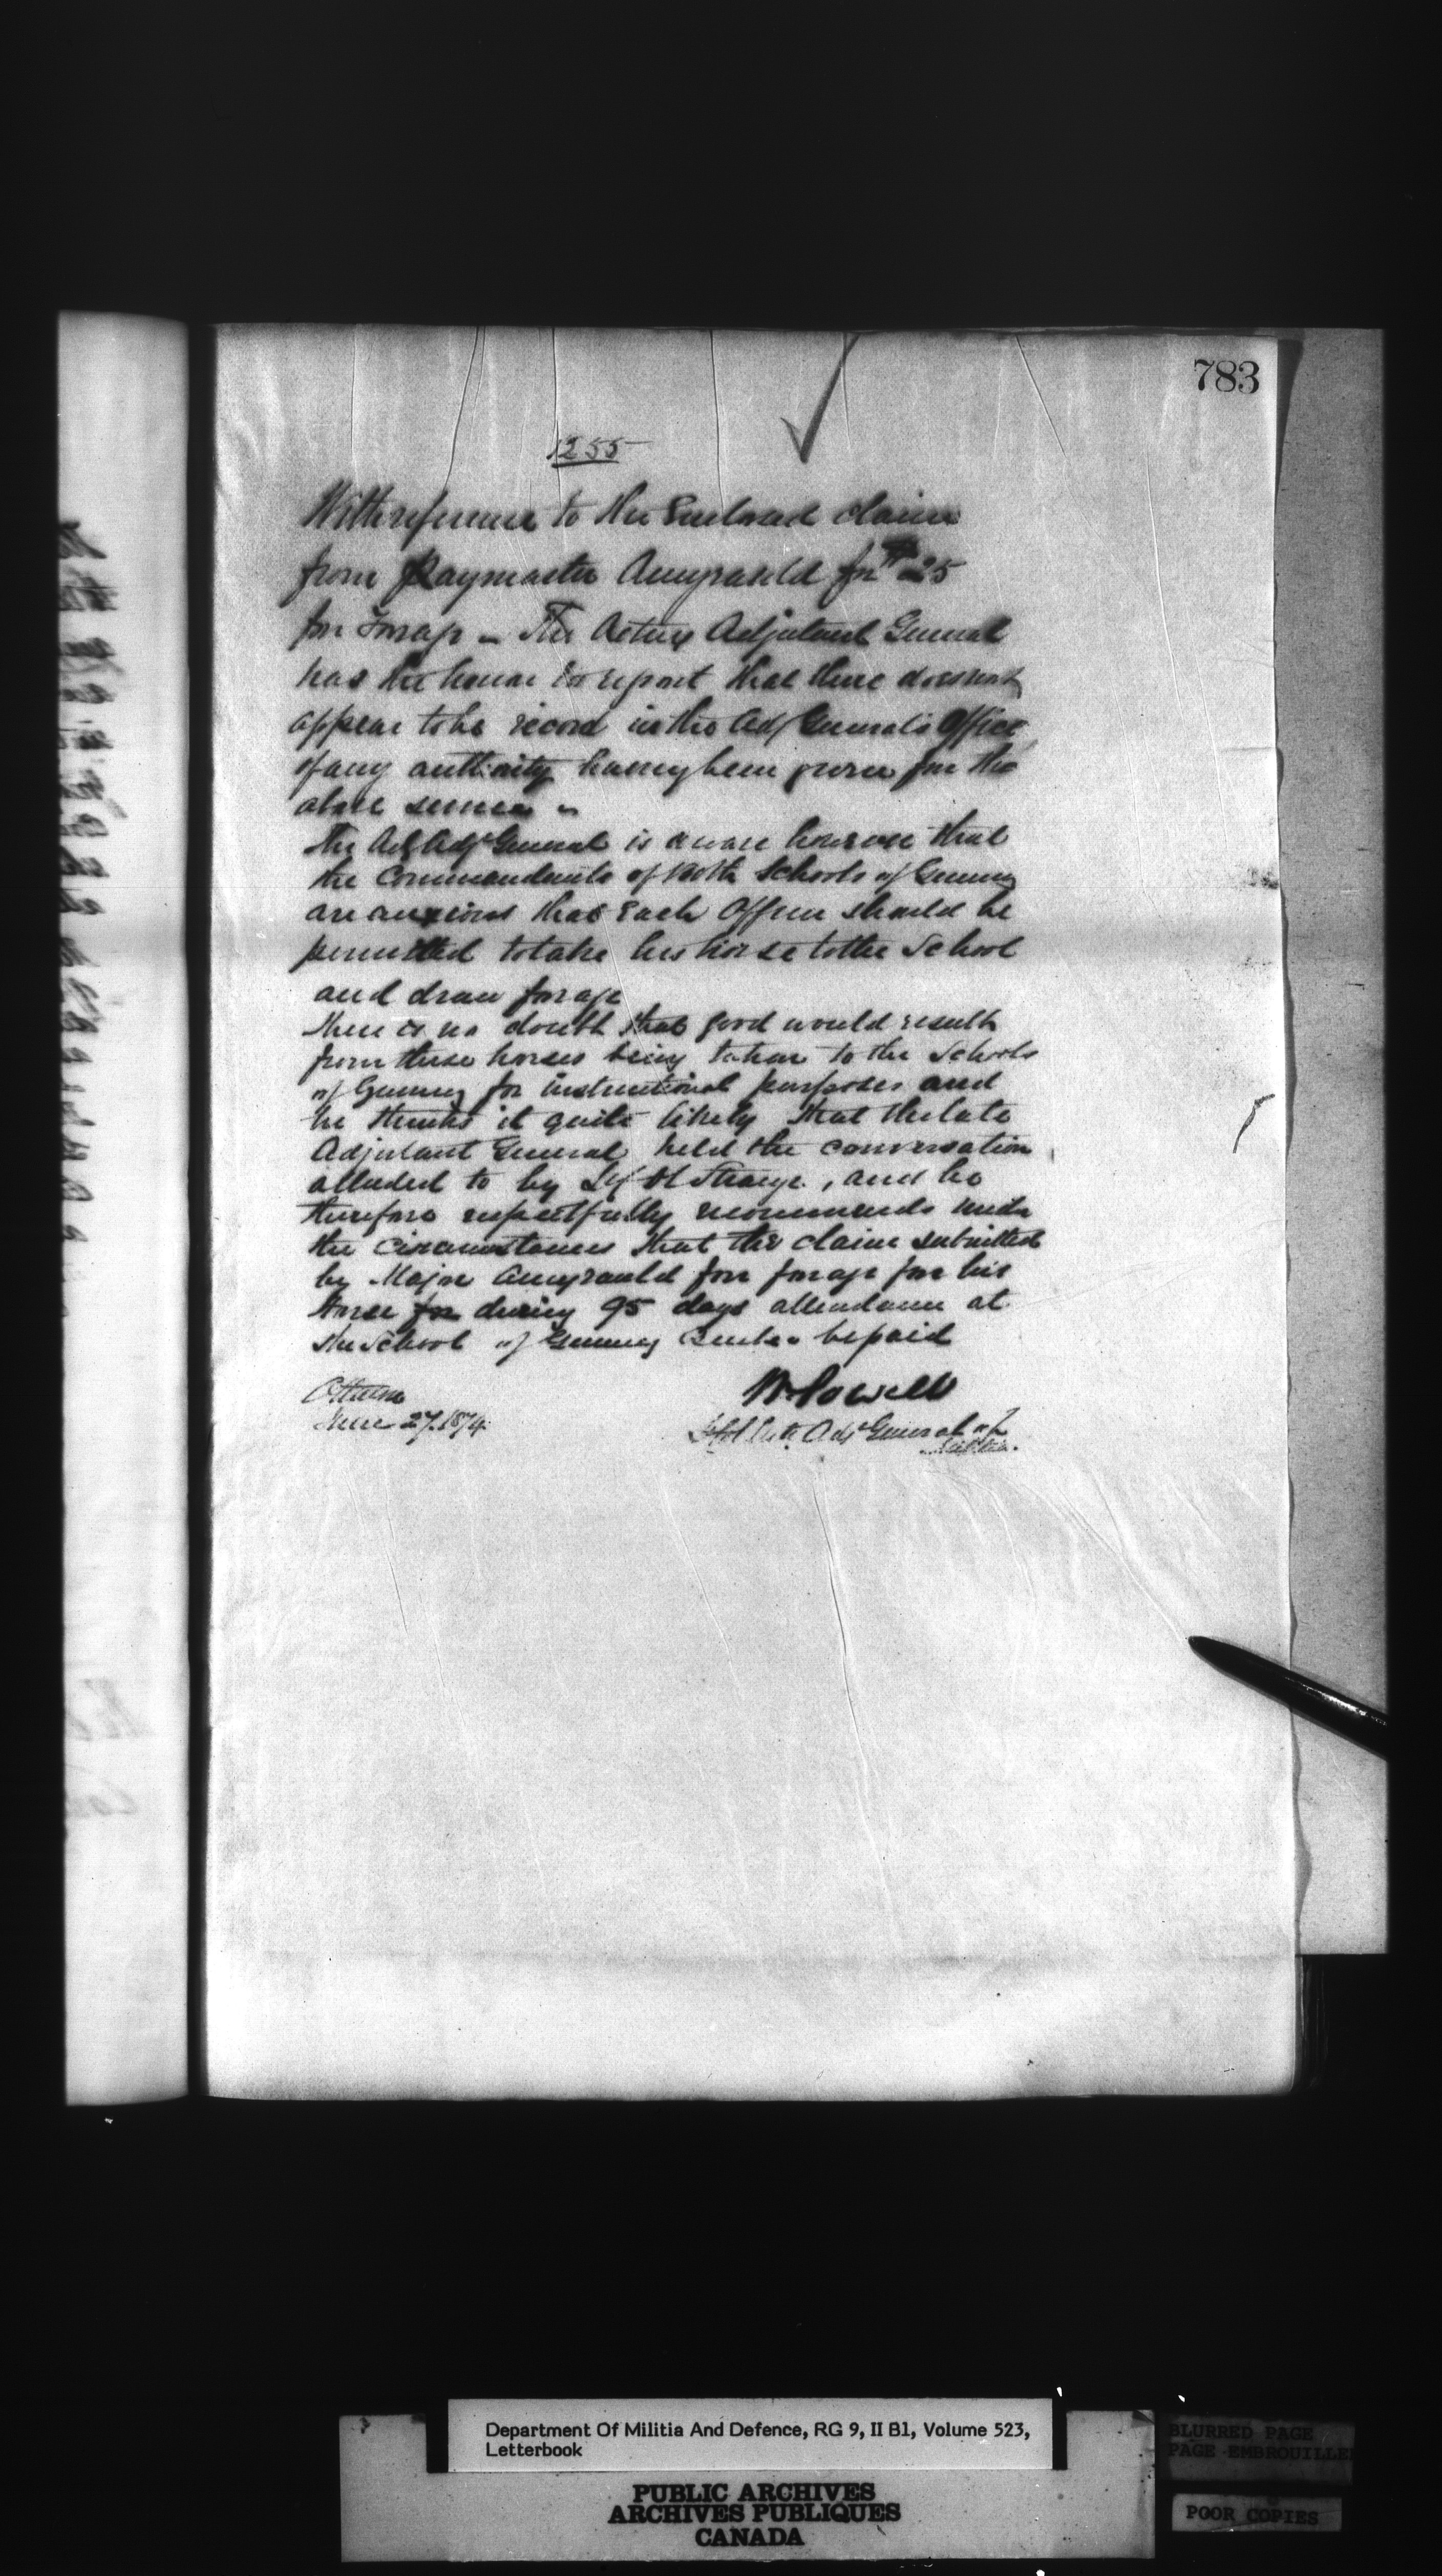 783
1255
With reference to the Enclosed claim
from Paymaster Amyrauld for $25
for Forage – The Acting Adjutant General
has the honor to report that there does not
appear to be record in the Adj General's Office
of any authority having been given for the
above service –
The Act Adjt General is aware however that
the Commandants of both Schools of Gunnery
are anxious that each Officer should be
permitted to take his horse to the School
and draw forage
there is no doubt that good would result
from these horses being taken to the Schools
of Gunnery for instructional purposes and
he thinks it quite likely that the late
Adjutant General held the conversation
alluded to by Lt Col Strange, and he
therefore respectfully recommends under
the circumstances that the claim submitted
by Major Amyrauld for forage for his
horse for during 95 days attendance at
the School of Gunnery be paid
Ottawa
June 27. 1874.
W. Powell
Lt Col Actg Adjt General of
Militia.
Department Of Militia And Defence, RG 9, II B1, Volume 523,
Letterbook
PUBLIC ARCHIVES
ARCHIVES PUBLIQUES
CANADA
BLURRED PAGE
PAGE EMBROUILLE
POOR COPIES